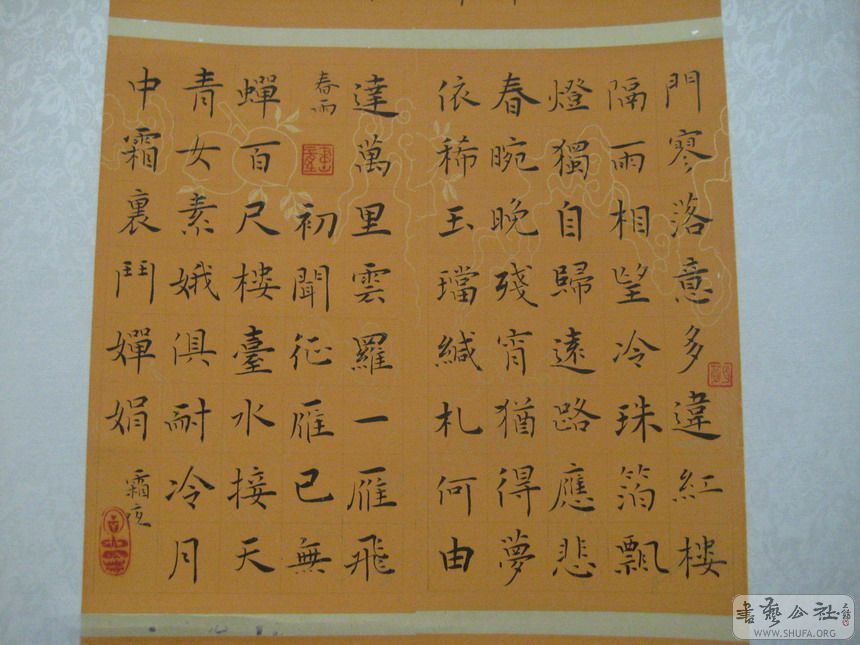 門寥落意多違紅樓
隔雨相望冷珠箔飄
燈獨自歸遠路應悲
春晼晚殘宵猶得夢
依稀玉璫緘札何由
達萬里雲羅一雁飛
春雨
初聞征雁已無
蟬百尺樓臺水接天
青女素娥俱耐冷月
中霜裏鬥嬋娟
霜
書藝公社
WWW.SHUFA.ORG